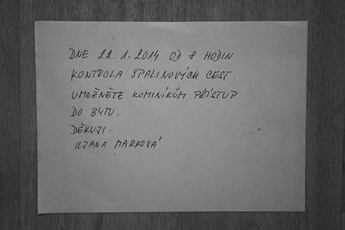 DNE 22.1.2014 OD 8 HODIN
KONTROLA SPALINOVÝCH CEST.
UMOŽNĚTE KOMINÍKŮM PŘÍSTUP
DO BYTU.
DĚKUJI.
ILJANA MARKOVÁ